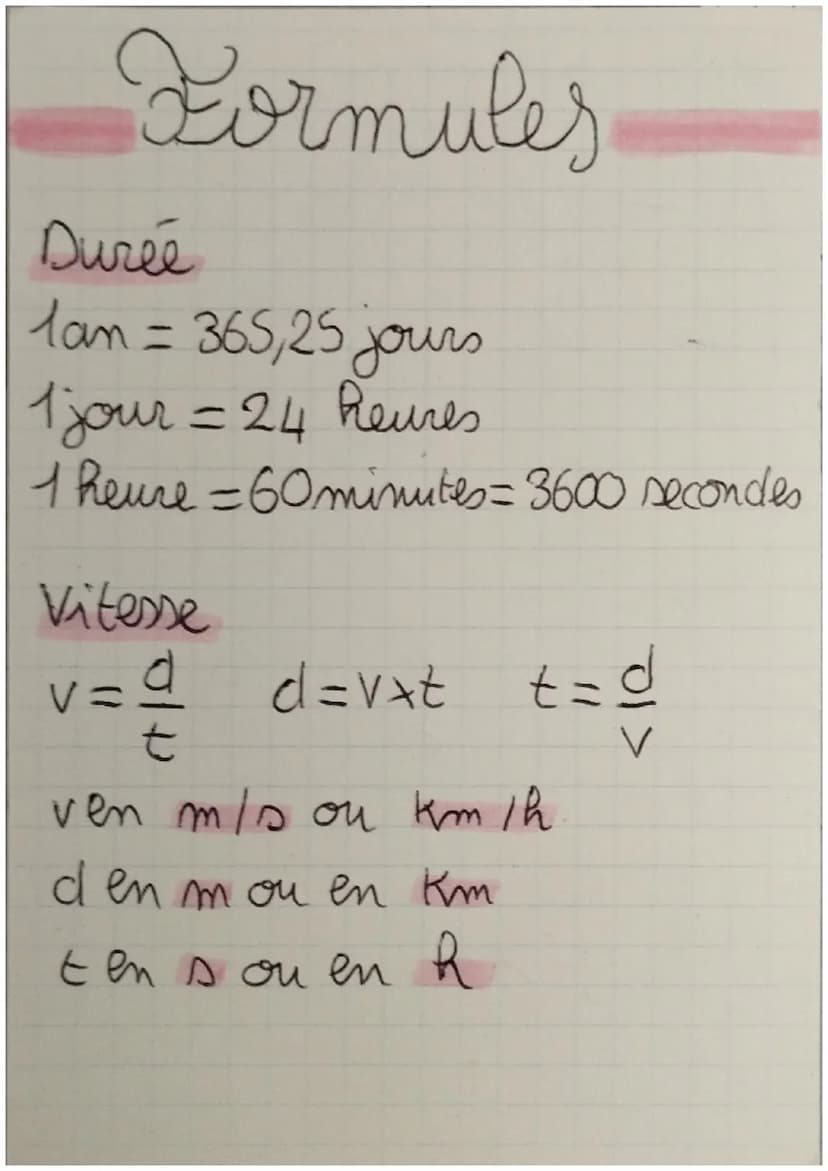 Formules
Durée
1an = 365,25 jours
1 jour = 24 heures
1 heure = 60 minutes = 3600 secondes
Vitesse
v = d/t d = v x t t = d/v
v en m/s ou Km/h
d en m ou en Km
t en s ou en h